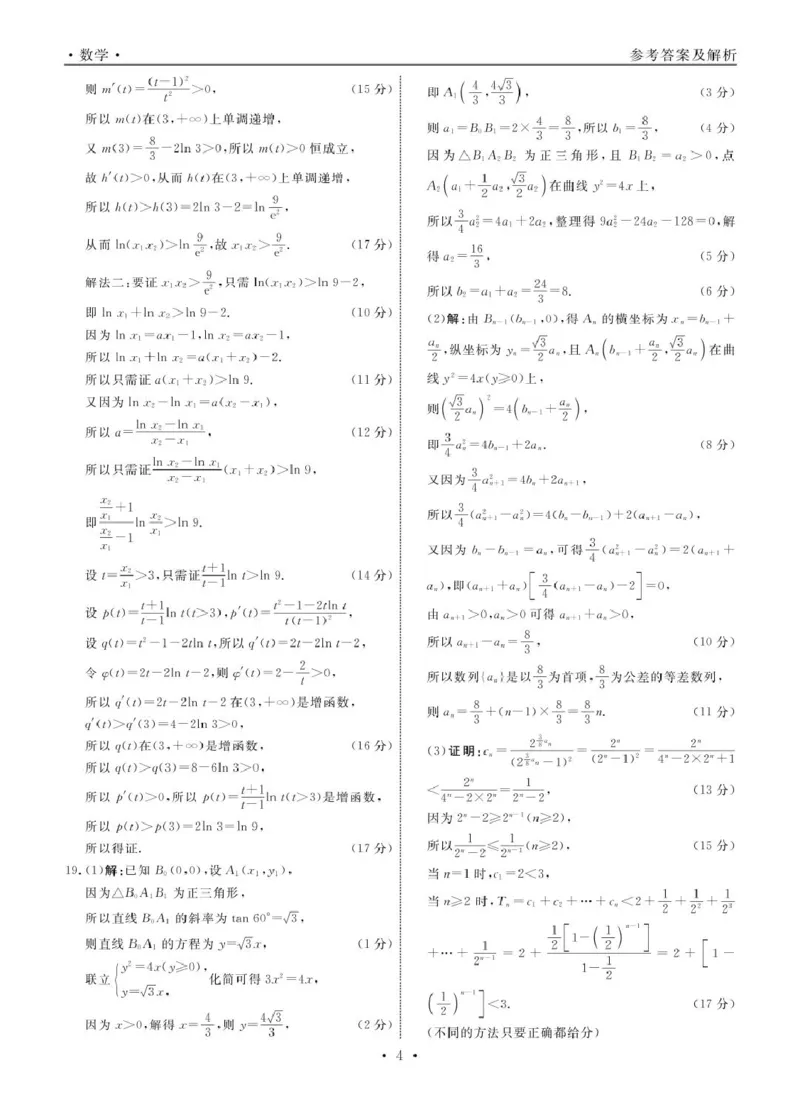 ·数学·
参考答案及解析
则 m′(t)=(t-1)²/t²>0, (15分)
所以 m(t)在(3,+∞)上单调递增,
又 m(3)=8/3-2ln 3>0,所以 m(t)>0 恒成立,
故 h′(t)>0,从而 h(t)在(3,+∞)上单调递增,
所以 h(t)>h(3)=2ln 3-2=ln 9/e²,
从而 ln(x₁x₂)>ln 9/e²,故 x₁x₂>9/e². (17分)
解法二:要证 x₁x₂>9/e²,只需 ln(x₁x₂)>ln 9-2,
即 ln x₁+ln x₂>ln 9-2. (10分)
因为 ln x₁=ax₁-1,ln x₂=ax₂-1,
所以 ln x₁+ln x₂=a(x₁+x₂)-2.
所以只需证 a(x₁+x₂)>ln 9. (11分)
又因为 ln x₂-ln x₁=a(x₂-x₁),
所以 a=(ln x₂-ln x₁)/(x₂-x₁), (12分)
所以只需证(ln x₂-ln x₁)/(x₂-x₁)(x₁+x₂)>ln 9,
即(x₂/x₁+1)/(x₂/x₁-1)ln x₂/x₁>ln 9.
设 t=x₂/x₁>3,只需证(t+1)/(t-1)ln t>ln 9. (14分)
设 p(t)=(t+1)/(t-1)ln t(t>3),p′(t)=(t²-1-2tln t)/(t(t-1)²),
设 q(t)=t²-1-2tln t,所以 q′(t)=2t-2ln t-2,
令 φ(t)=2t-2ln t-2,则 φ′(t)=2-2/t>0,
所以 q′(t)=2t-2ln t-2 在(3,+∞)是增函数,
q′(t)>q′(3)=4-2ln 3>0,
所以 q(t)在(3,+∞)是增函数, (16分)
所以 q(t)>q(3)=8-6ln 3>0,
所以 p′(t)>0,所以 p(t)=(t+1)/(t-1)ln t(t>3)是增函数,
所以 p(t)>p(3)=2ln 3=ln 9,
所以得证. (17分)
19.(1)解:已知 B₀(0,0),设 A₁(x₁,y₁),
因为△B₀A₁B₁ 为正三角形,
所以直线 B₀A₁ 的斜率为 tan 60°=√3,
则直线 B₀A₁ 的方程为 y=√3x, (1分)
联立{y²=4x(y≥0), y=√3x, 化简可得 3x²=4x,
因为 x>0,解得 x=4/3,则 y=4√3/3. (2分)
即 A₁(4/3,4√3/3), (3分)
则 a₁=B₀B₁=2×4/3=8/3,所以 b₁=8/3, (4分)
因为△B₁A₂B₂ 为正三角形,且 B₁B₂=a₂>0,点
A₂(a₁+1/2a₂,√3/2a₂)在曲线 y²=4x 上,
所以3/4a₂²=4a₁+2a₂,整理得 9a₂²-24a₂-128=0,解
得 a₂=16/3, (5分)
所以 b₂=a₁+a₂=24/3=8. (6分)
(2)解:由 Bₙ₋₁(bₙ₋₁,0),得 Aₙ 的横坐标为 xₙ=bₙ₋₁+
aₙ/2,纵坐标为 yₙ=√3/2aₙ,且 Aₙ(bₙ₋₁+aₙ/2,√3/2aₙ)在曲
线 y²=4x(y≥0)上,
则(√3/2aₙ)²=4(bₙ₋₁+aₙ/2),
即3/4aₙ²=4bₙ₋₁+2aₙ. (8分)
又因为3/4aₙ₊₁²=4bₙ+2aₙ₊₁,
所以3/4(aₙ₊₁²-aₙ²)=4(bₙ-bₙ₋₁)+2(aₙ₊₁-aₙ),
又因为 bₙ-bₙ₋₁=aₙ,可得3/4(aₙ₊₁²-aₙ²)=2(aₙ₊₁+
aₙ),即(aₙ₊₁+aₙ)[3/4(aₙ₊₁-aₙ)-2]=0,
由 aₙ₊₁>0,aₙ>0 可得 aₙ₊₁+aₙ>0,
所以 aₙ₊₁-aₙ=8/3, (10分)
所以数列{aₙ}是以8/3为首项,8/3为公差的等差数列,
则 aₙ=8/3+(n-1)×8/3=8/3n. (11分)
(3)证明:cₙ=2^(3/8aₙ)/(2^(3/8aₙ)-1)²=2ⁿ/(2ⁿ-1)²=2ⁿ/(4ⁿ-2×2ⁿ+1)
<2ⁿ/(4ⁿ-2×2ⁿ)=1/(2ⁿ-2), (13分)
因为 2ⁿ-2≥2ⁿ⁻¹(n≥2),
所以1/(2ⁿ-2)≤1/2ⁿ⁻¹(n≥2), (15分)
当 n=1 时,c₁=2<3,
当 n≥2 时,Tₙ=c₁+c₂+⋯+cₙ<2+1/2+1/2²+1/2³
+⋯+1/2ⁿ⁻¹=2+(1/2[1-(1/2)ⁿ⁻¹])/(1-1/2)=2+[1-
(1/2)ⁿ⁻¹]<3. (17分)
(不同的方法只要正确都给分)
·4·